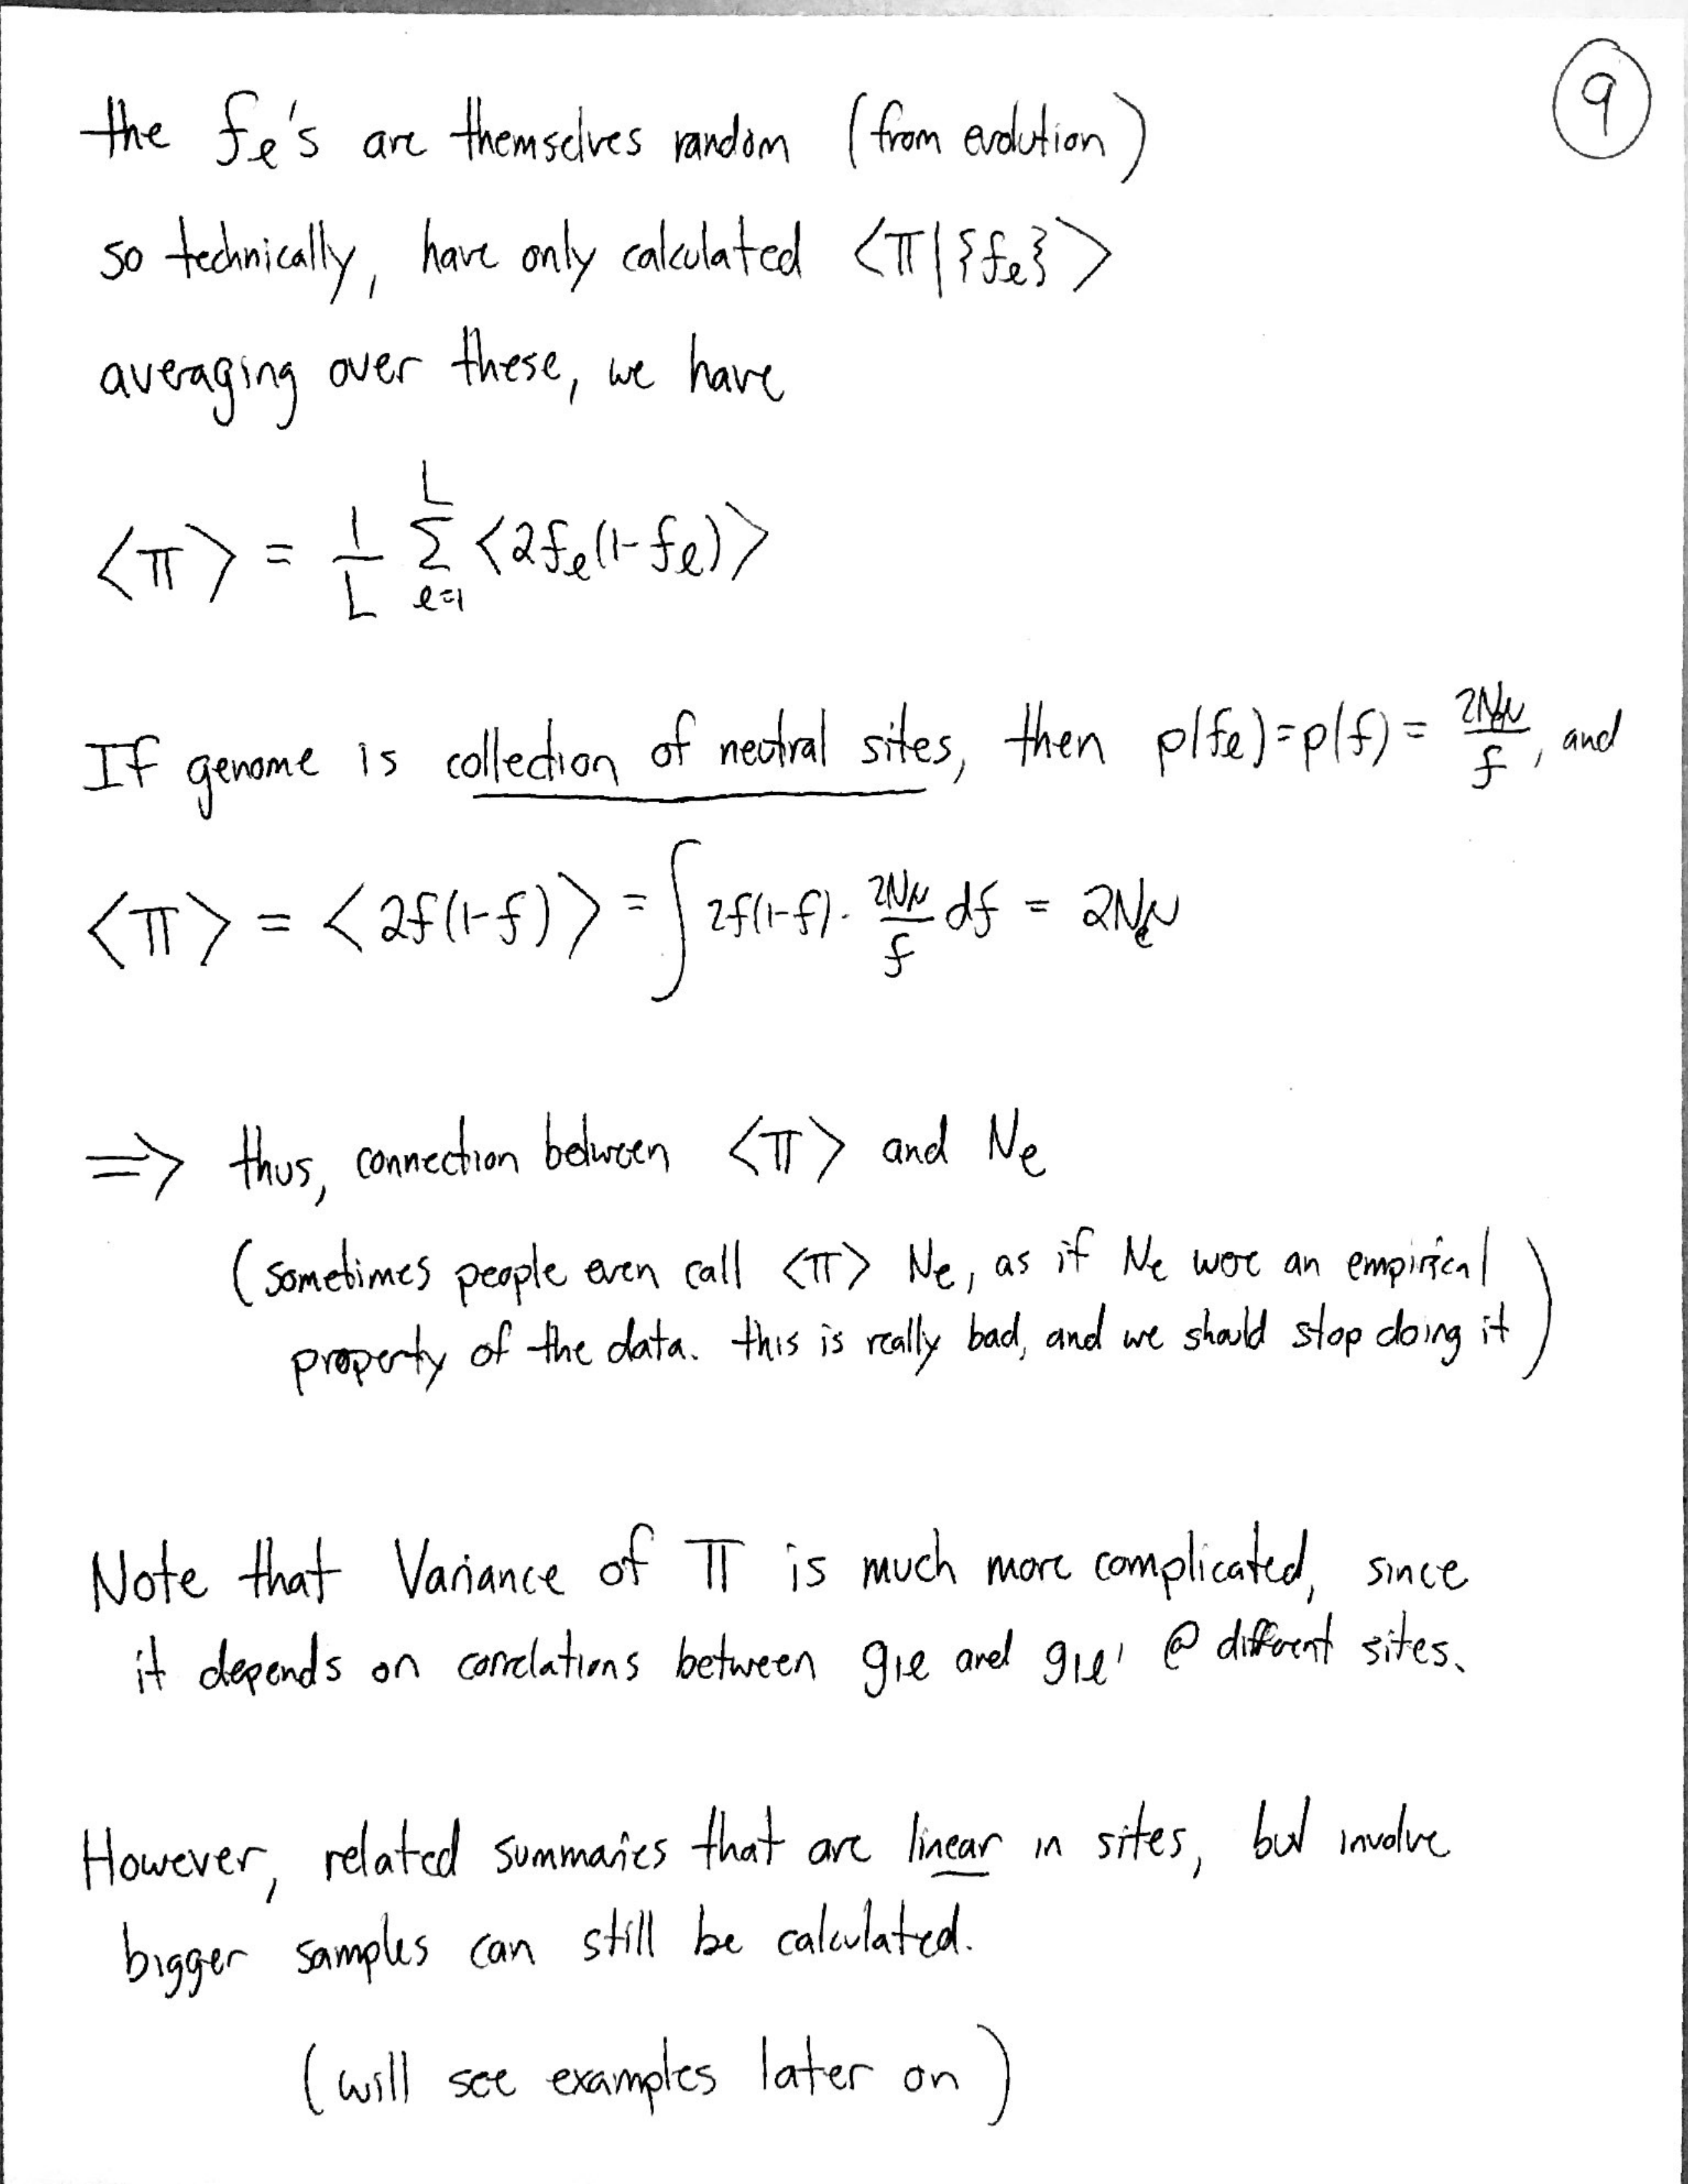 9
the fℓ's are themselves random (from evolution)
so technically, have only calculated <π|{fℓ}>
averaging over these, we have
<π> = 1/L Σ_{ℓ=1}^{L} <2fℓ(1-fℓ)>
If genome is collection of neutral sites, then p(fℓ)=p(f) = 2Neμ/f, and
<π> = <2f(1-f)> = ∫ 2f(1-f)· 2Nμ/f df = 2Neμ
=> thus, connection between <π> and Ne
(sometimes people even call <π> Ne, as if Ne were an empirical
property of the data. this is really bad, and we should stop doing it)
Note that Variance of π is much more complicated, since
it depends on correlations between g1ℓ and g1ℓ' @ different sites.
However, related summaries that are linear in sites, but involve
bigger samples can still be calculated.
(will see examples later on)